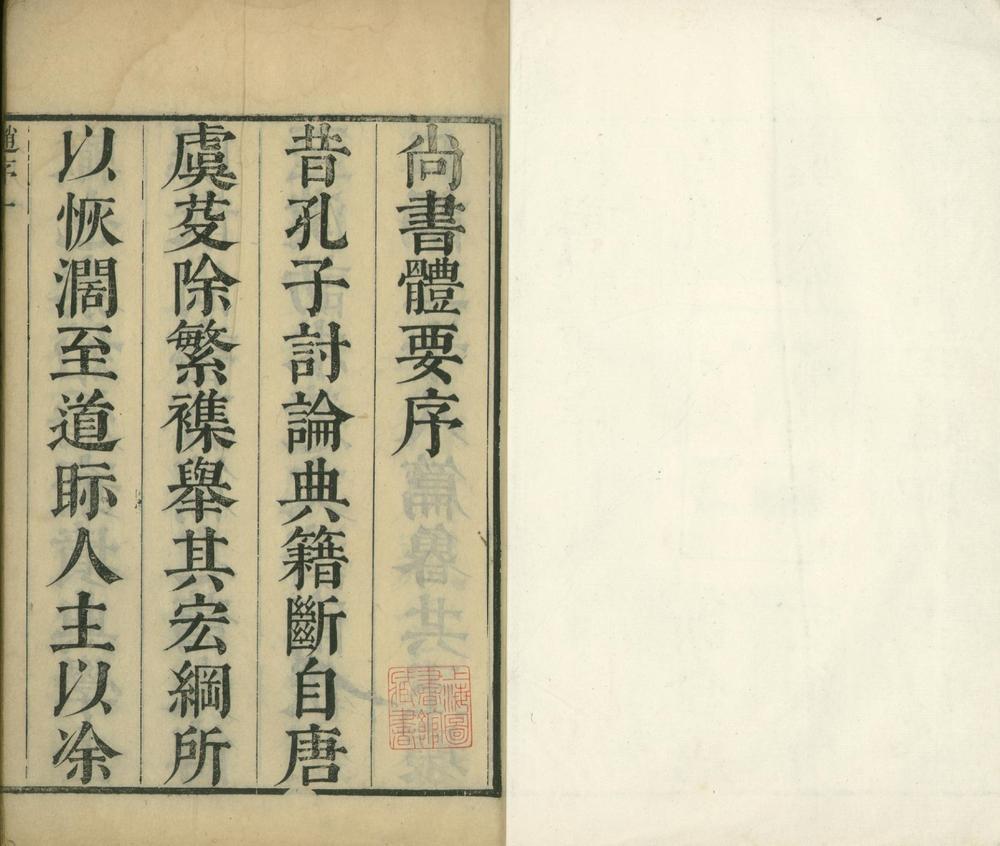 尚書體要序
昔孔子討論典籍斷自唐
虞芟除繁襍舉其宏綱所
以恢濶至道眎人主以涂
趙序 一
上海圖書館藏書